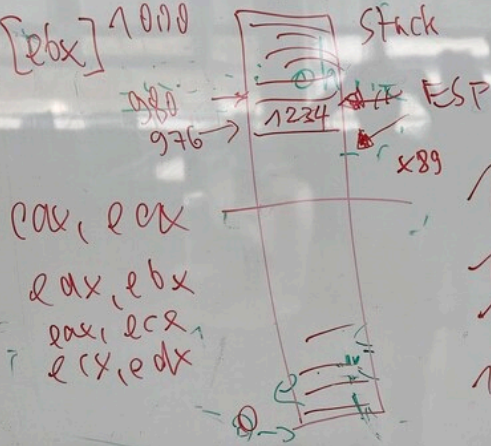 [ebx] 1000 Stack
980 ESP
976 1234
x89
eax, ecx
eax, ebx
eax, ecx
ecx, edx
0